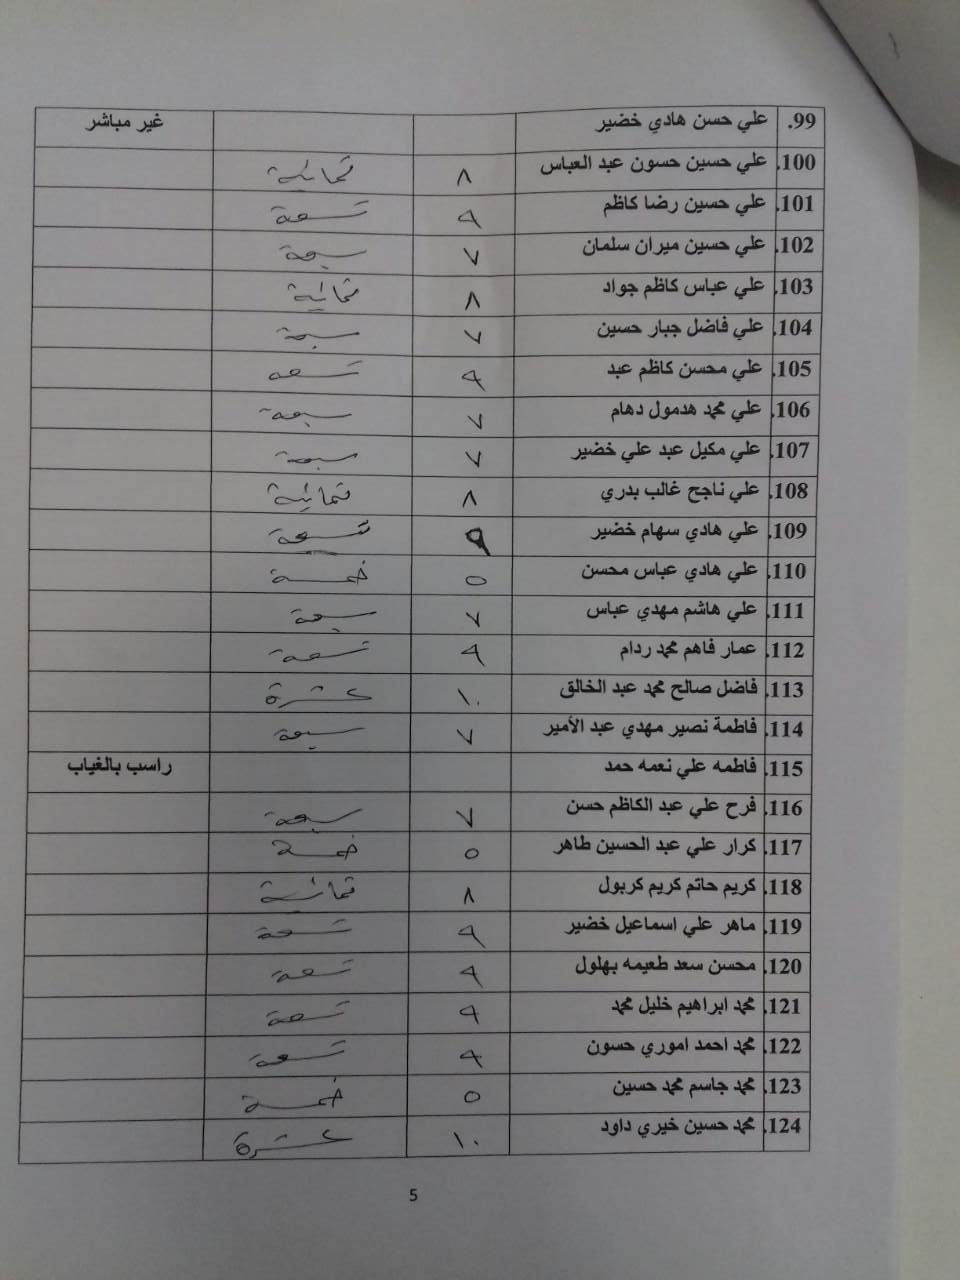 99. علي حسن هادي خضير غير مباشر
100. علي حسين حسون عبد العباس ٨ ثمانية
101. علي حسين رضا كاظم ٩ تسعة
102. علي حسين ميران سلمان ٧ سبعة
103. علي عباس كاظم جواد ٨ ثمانية
104. علي فاضل جبار حسين ٧ سبعة
105. علي محسن كاظم عبد ٩ تسعه
106. علي محمد هدمول دهام ٧ سبعة
107. علي مكيل عبد علي خضير ٧ سبعة
108. علي ناجح غالب بدري ٨ ثمانية
109. علي هادي سهام خضير ٩ تسعة
110. علي هادي عباس محسن ٥ خمسة
111. علي هاشم مهدي عباس ٧ سبعة
112. عمار فاهم محمد ردام ٩ تسعة
113. فاضل صالح محمد عبد الخالق ١٠ عشرة
114. فاطمة نصير مهدي عبد الأمير ٧ سبعة
115. فاطمه علي نعمه حمد راسب بالغياب
116. فرح علي عبد الكاظم حسن ٧ سبعة
117. كرار علي عبد الحسين طاهر ٥ خمسة
118. كريم حاتم كريم كربول ٨ ثمانية
119. ماهر علي اسماعيل خضير ٩ تسعة
120. محسن سعد طعيمه بهلول ٩ تسعة
121. محمد ابراهيم خليل محمد ٩ تسعة
122. محمد احمد اموري حسون ٩ تسعة
123. محمد جاسم محمد حسين ٥ خمسة
124. محمد حسين خيري داود ١٠ عشرة
5